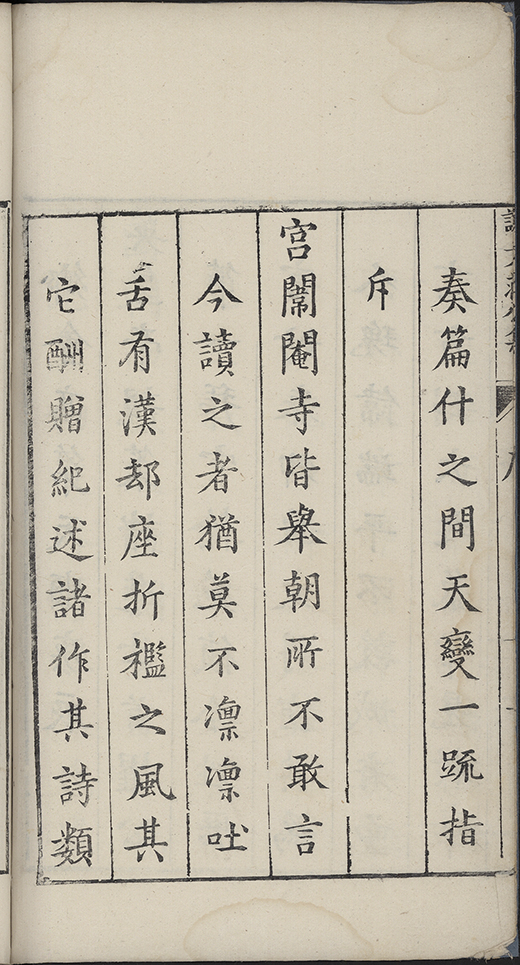 奏篇什之間天變一䟽指
斥
宫闈閹寺皆舉朝所不敢言
今讀之者猶莫不凛凛吐
舌有漢却座折檻之風其
它酬贈紀述諸作其詩類